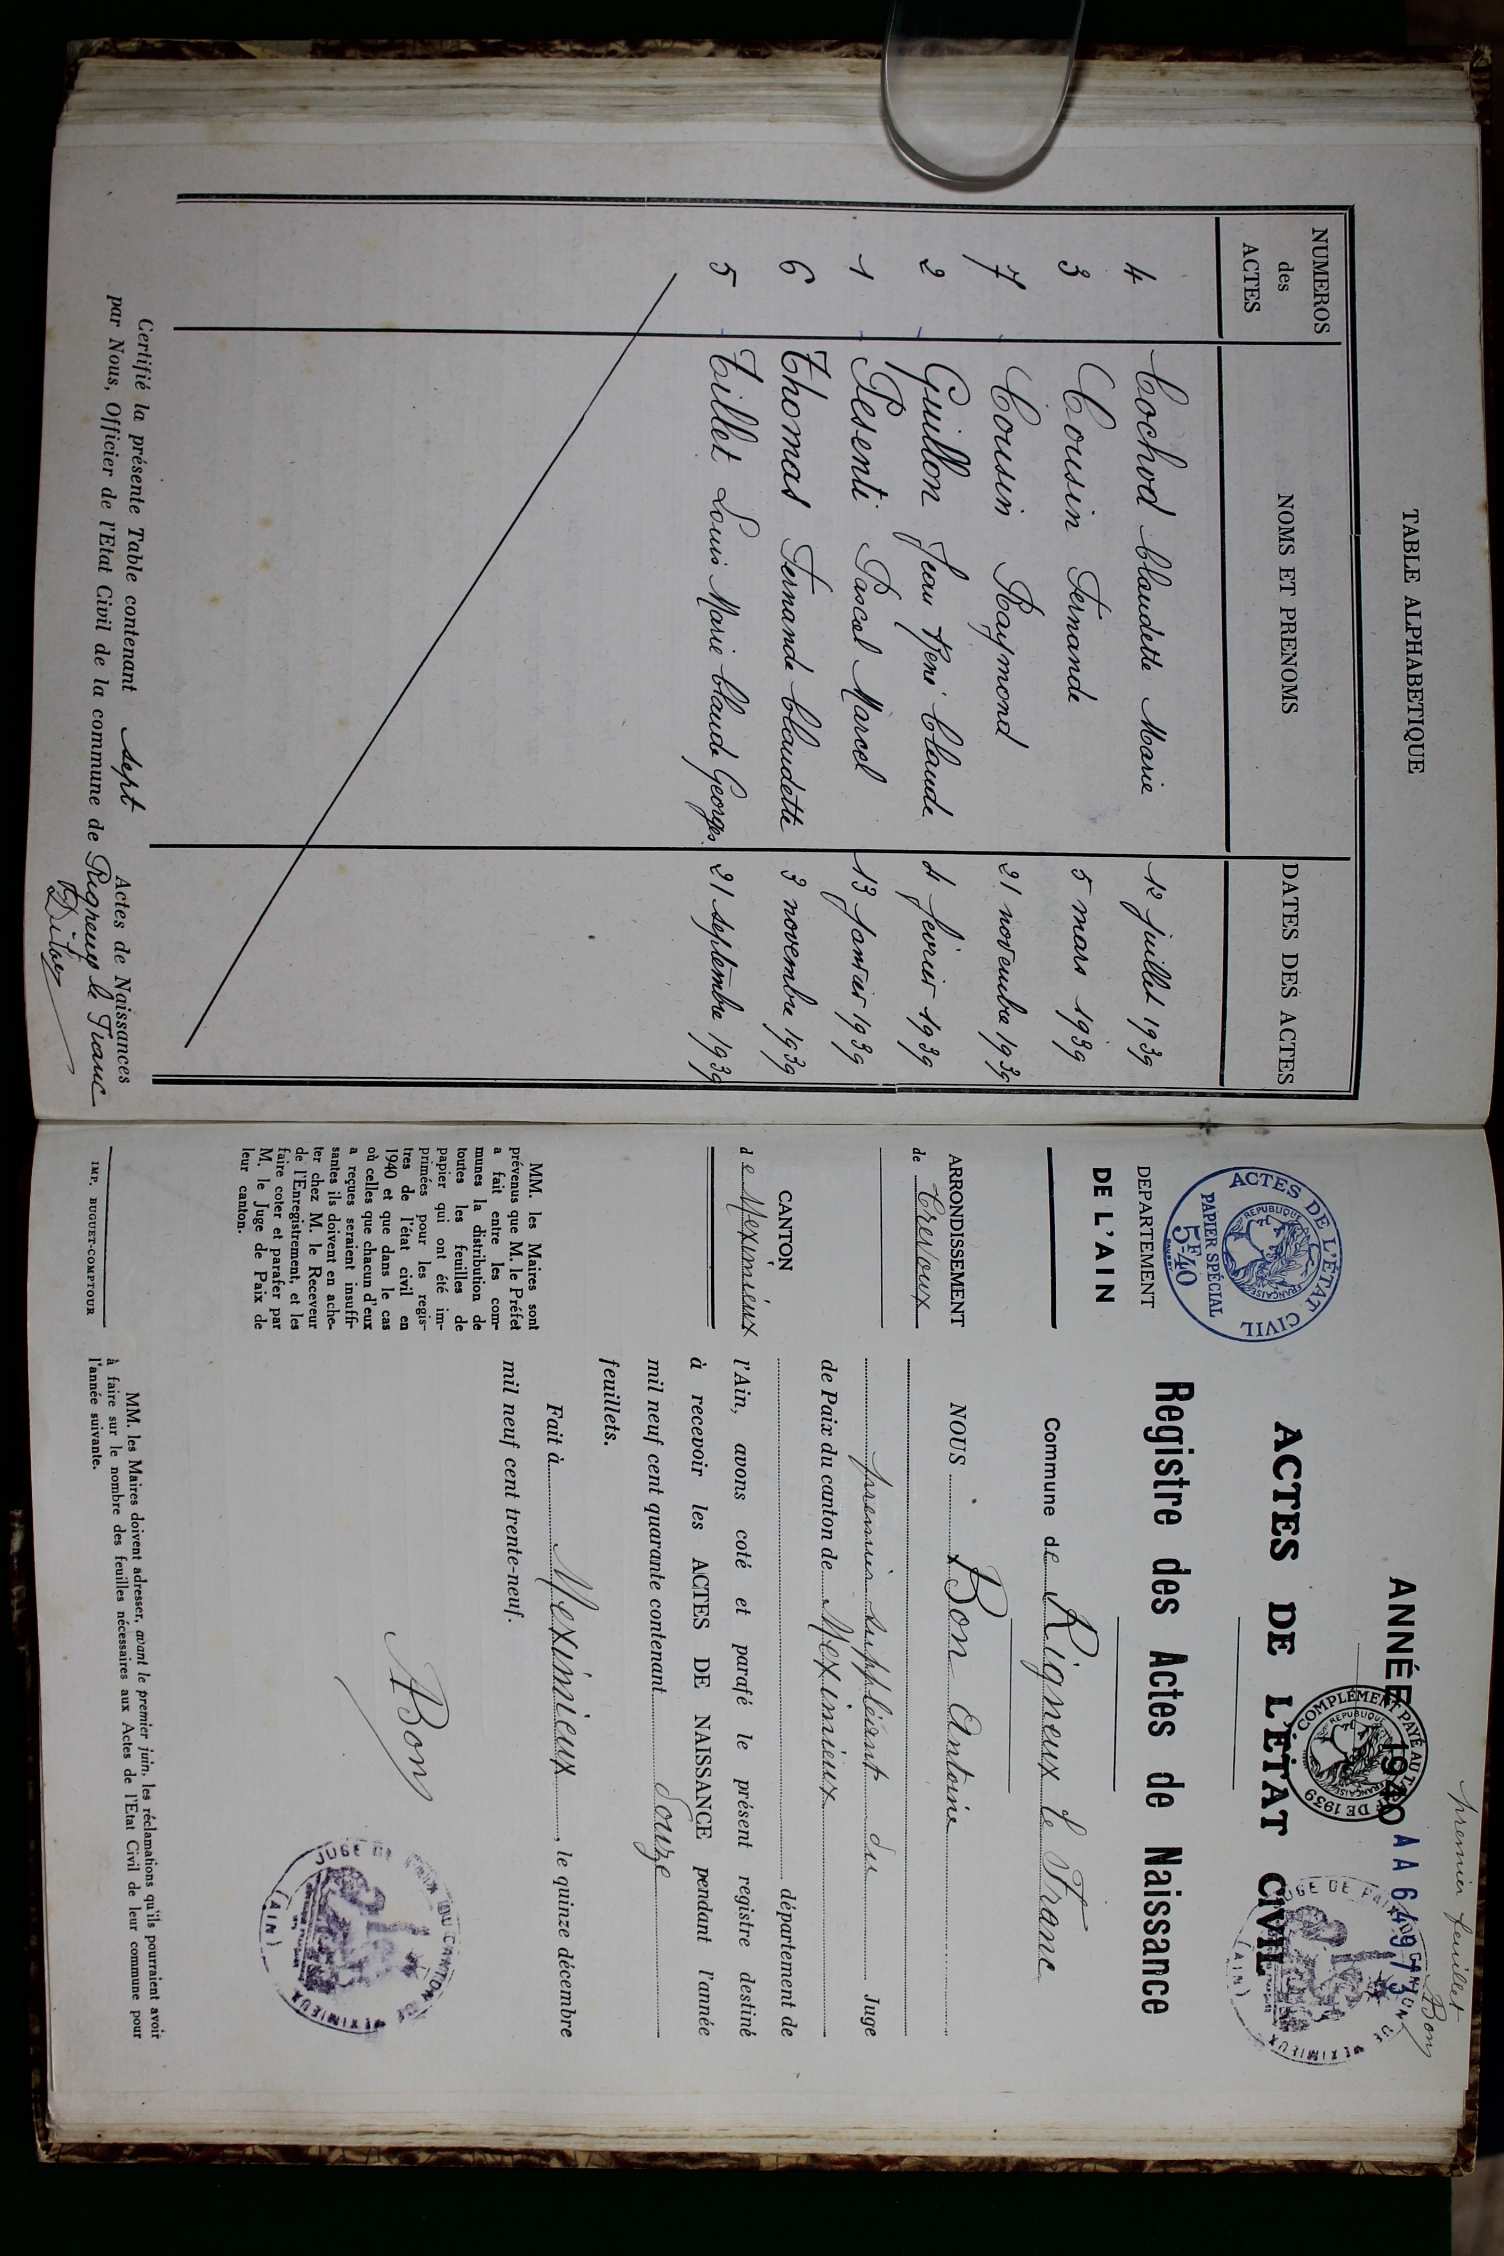 TABLE ALPHABETIQUE
NUMEROS des ACTES
NOMS ET PRENOMS
DATES DES ACTES
4 Cochod Claudette Marie 12 juillet 1939
3 Cousin Fernande 5 mars 1939
7 Cousin Raymond 21 novembre 1939
2 Guillon Jean René Claude 4 février 1939
1 Pesenti Pascal Marcel 13 janvier 1939
6 Thomas Fernande Claudette 3 novembre 1939
5 Tillet Louis Marie Claude Georges. 21 septembre 1939
Certifié la présente Table contenant sept Actes de Naissances
par Nous, Officier de l'Etat Civil de la commune de Rigneux le Franc
premier feuillet
Bon
ACTES DE L'ÉTAT CIVIL
RÉPUBLIQUE FRANÇAISE
PAPIER SPÉCIAL
5F.40
DEPARTEMENT
DE L'AIN
ARRONDISSEMENT
de Trévoux
CANTON
de Meximieux
MM. les Maires sont
prévenus que M. le Préfet
a fait entre les com-
munes la distribution de
toutes les feuilles de
papier qui ont été im-
primées pour les regis-
tres de l'état civil en
1940 et que dans le cas
où celles que chacun d'eux
a reçues seraient insuffi-
santes ils doivent en ache-
ter chez M. le Receveur
de l'Enregistrement, et les
faire coter et parafer par
M. le Juge de Paix de
leur canton.
IMP. BUGUET-COMPTOUR
ANNÉE 1940
AA 64973
COMPLÉMENT PAYÉ AU TARIF DE 1939
RÉPUBLIQUE FRANÇAISE
JUGE DE PAIX DU CANTON DE MEXIMIEUX
(AIN)
ACTES DE L'ÉTAT CIVIL
Registre des Actes de Naissance
Commune de Rigneux le Franc
NOUS Bon Antoine
premier suppléant du Juge
de Paix du canton de Meximieux
département de
l'Ain, avons coté et parafé le présent registre destiné
à recevoir les ACTES DE NAISSANCE pendant l'année
mil neuf cent quarante contenant douze
feuillets.
Fait à Meximieux, le quinze décembre
mil neuf cent trente-neuf.
Bon
JUGE DE PAIX DU CANTON DE MEXIMIEUX
(AIN)
MM. les Maires doivent adresser, avant le premier juin, les réclamations qu'ils pourraient avoir
à faire sur le nombre des feuilles nécessaires aux Actes de l'Etat Civil de leur commune pour
l'année suivante.